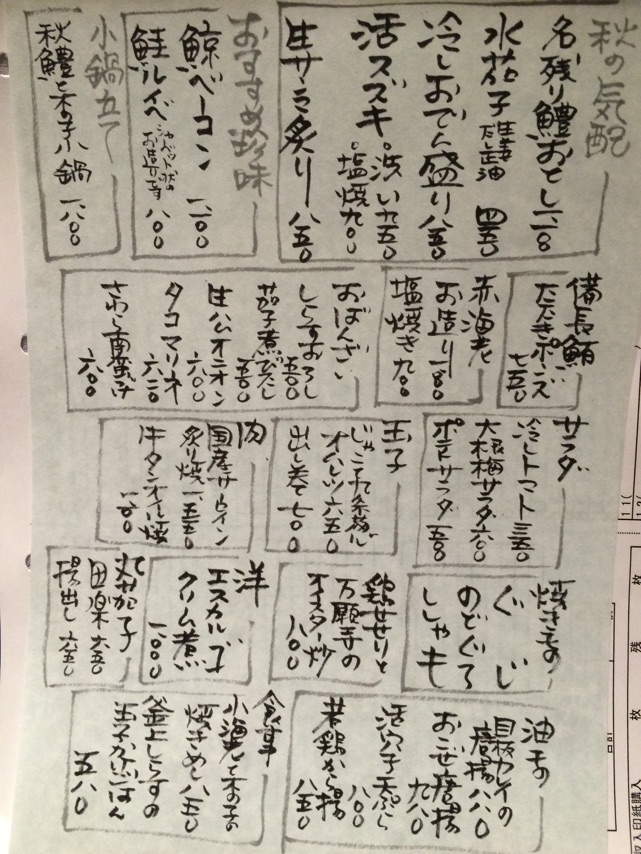 秋の気配
名残り鱧おとし
水茄子 生姜醤油 四五〇
冷しおでん盛り 八五〇
活スズキ。洗い 九五〇
。塩焼 九〇〇
生サラミ炙り 八五〇
おすすめ珍味
鯨ベーコン
鮭ルイベ シャーベット状のお造りです 八〇〇
小鍋立て
秋鱧と木の子小鍋 一、八〇〇
備長鮪
たたきポンズ
七五〇
赤海老
お造り
塩焼き 九〇〇
おばんざい
しらすおろし
五〇〇
茄子煮びたし
五〇〇
生ハムオニオン
六〇〇
タコマリネ
六二〇
さわら南蛮漬け
六〇〇
サラダ
冷しトマト 三五〇
大根梅サラダ 六〇〇
ポテトサラダ 五五〇
玉子
オムレツ 六五〇
出し巻き 七〇〇
肉
国産サーロイン
炙り焼
牛タンオイル焼
焼きもの
ぐじ
のどぐろ
ししゃも
鶏せせりと
万願寺の
オイスター炒
八〇〇
洋
エスカルゴ
クリーム煮
一、〇〇〇
丸茄子
田楽 六五〇
揚出し 六五〇
油もの
目板カレイの
唐揚 八八〇
おこぜ唐揚
九八〇
活穴子天ぷら
八〇〇
若鶏から揚
八五〇
食事
小海老と木の子の
焼きめし 八五〇
釜上しらすの
玉子かけごはん
五八〇
印紙購入
枚
残
枚